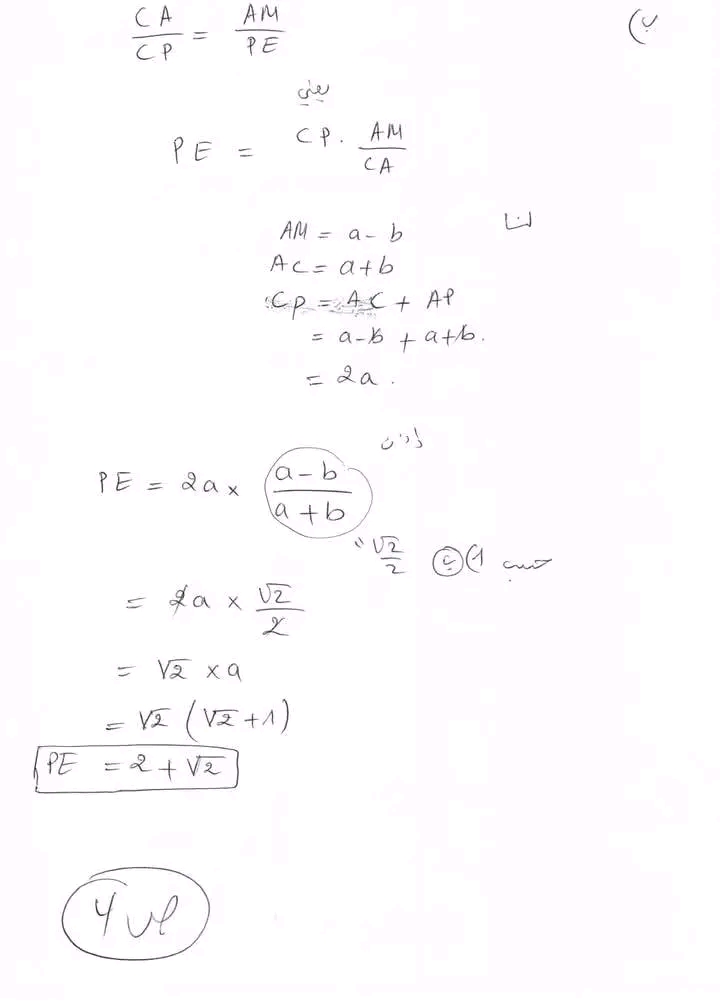 ب)
CA/CP = AM/PE
يعني
PE = CP . AM/CA
لنا
AM = a - b
AC = a + b
CP = AC + AP
= a - b + a + b.
= 2a .
إذن
PE = 2a × (a - b)/(a + b)
√2/2 حسب 1) ب
= 2a × √2/2
= √2 × a
= √2 (√2 + 1)
PE = 2 + √2